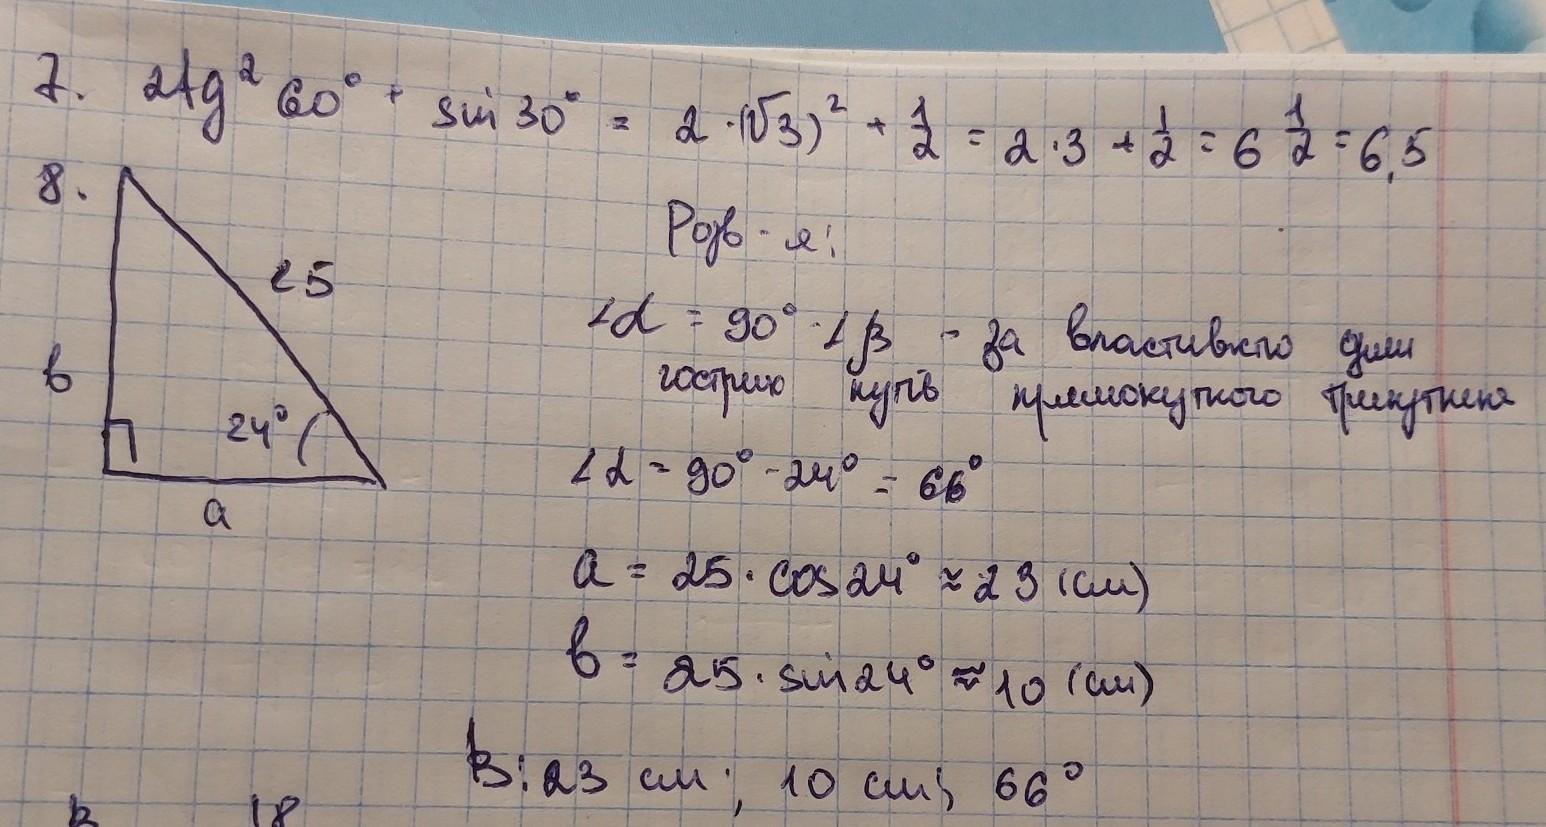 7. 2tg² 60° + sin 30° = 2 · (√3)² + 1/2 = 2 · 3 + 1/2 = 6 1/2 = 6,5
8.
Розв-я:
25
∠α = 90° - ∠β - за властивістю
гострих кутів прямокутного трикутника
в
24°
∠α = 90° - 24° = 66°
a
a = 25 · cos 24° ≈ 23 (см)
в = 25 · sin 24° ≈ 10 (см)
В: 23 см; 10 см; 66°
18